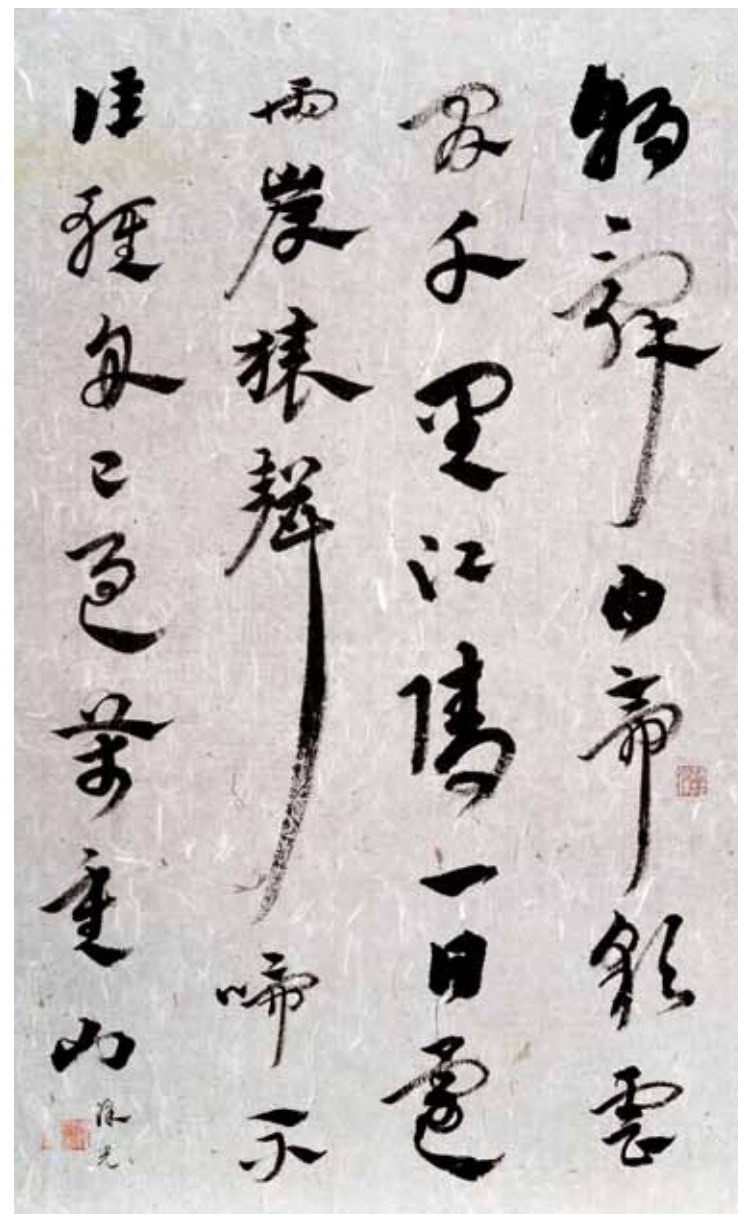 朝辭白帝彩雲
間千里江陵一日還
兩岸猿聲啼不
住輕舟已過萬重山